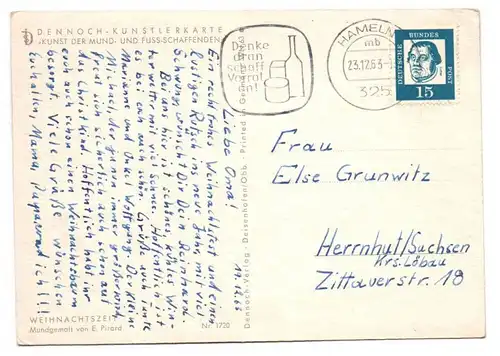 DENNOCH - KÜNSTLERKARTE
„KUNST DER MUND- UND FUSS-SCHAFFENDEN"
Denke
dran
schaff
Vorrat
an!
HAMELN
mb
23.12.63-
325
DEUTSCHE
BUNDES
POST
15
11.12.63
Liebe Oma!
Ein recht frohes Weihnachtsfest und einen
lustigen Rutsch ins neue Jahr mit viel
Schwung, wünscht Dir Dein Reinhard.
Bei uns hier ist schönes kaltes Win-
terwetter mit Schnee. Hoffentlich ist
es bei euch auch schön. Grüße auch Tante
Marianne und Onkel Wolfgang. Der kleine
Michael, der ja nun immer größer wird,
freut sich sicherlich auch schon auf
das Christkind. Hoffentlich habt ihr
euch auch schon einen Weihnachtsbaum
besorgt. Viele Grüße wünschen
Euch allen, Mama, Papa und ich!!!
Frau
Else Grunwitz
Herrnhut/Sachsen
Krs. Löbau
Zittauerstr. 18
WEIHNACHTSZEIT
Mundgemalt von E. Pirard
Nr. 1720
Dennoch-Verlag - Deisenhofen/Obb. - Printed in Germany